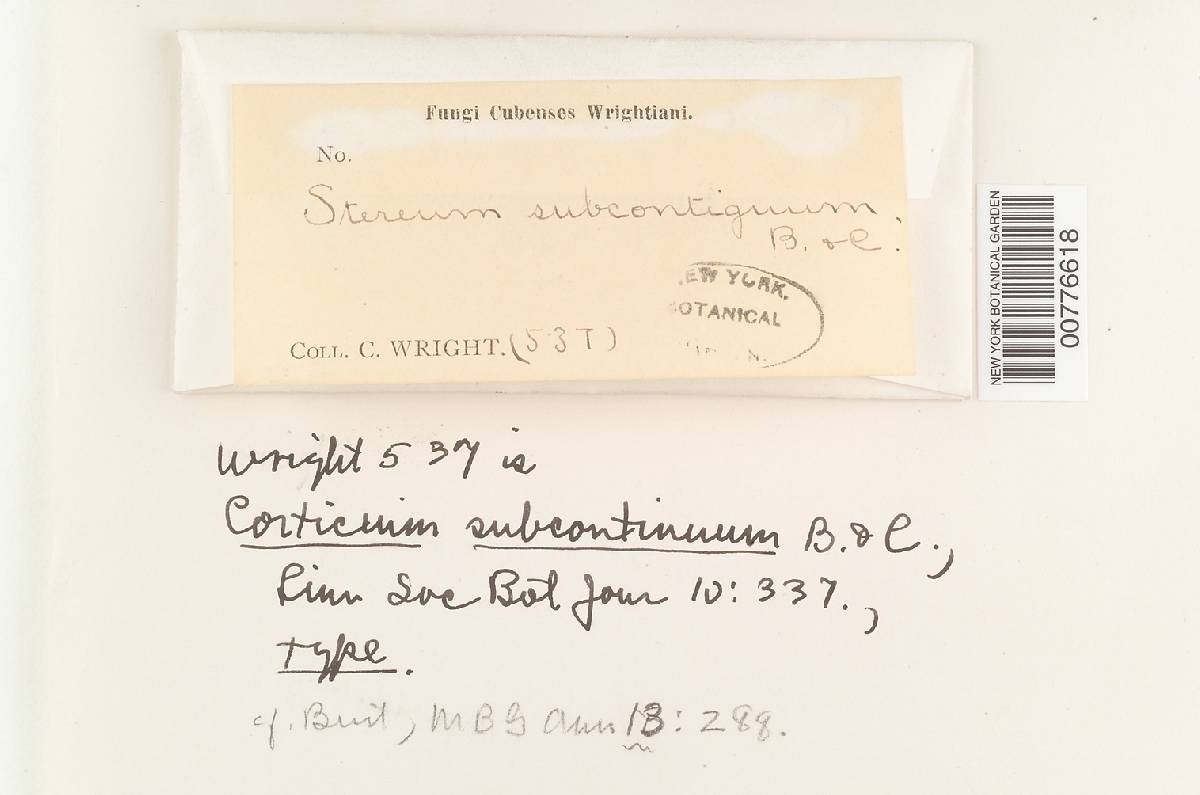 Fungi Cubenses Wrightiani.
No.
Stereum subcontiguum.
B. & C.
NEW YORK BOTANICAL GARDEN
00776618
EW YORK.
OTANICAL
N.
COLL. C. WRIGHT. (537)
Wright 537 is
Corticium subcontinuum B. & C.,
Linn Soc Bot Jour 10: 337.,
type.
cf. Burt, MBG Ann 13: 288.